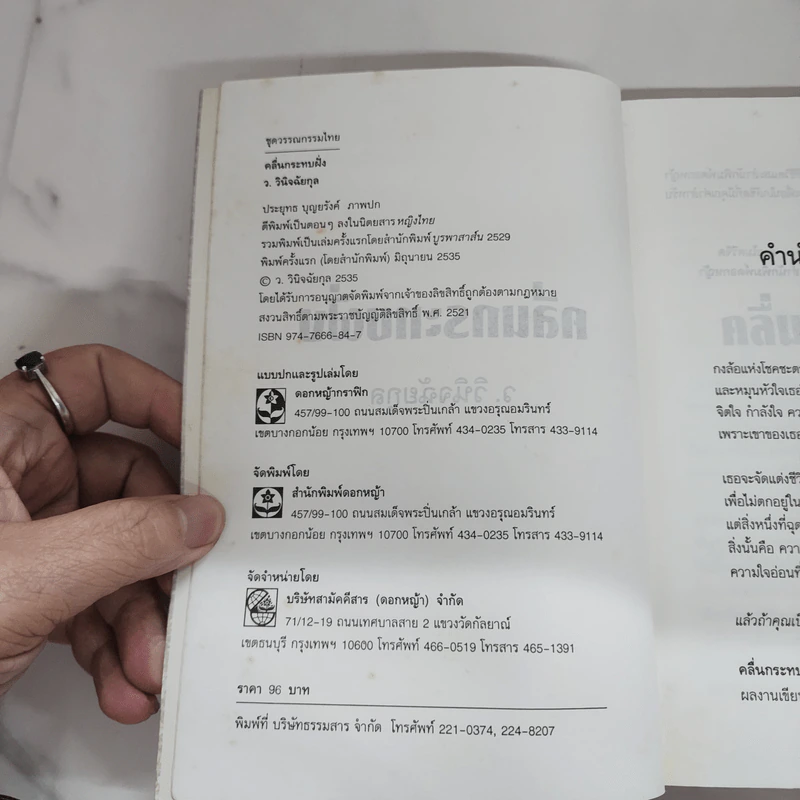 ชุดวรรณกรรมไทย
คลื่นกระทบฝั่ง
ว. วินิจฉัยกุล
ประยุทธ บุญยรังค์ ภาพปก
ตีพิมพ์เป็นตอนๆ ลงในนิตยสาร หญิงไทย
รวมพิมพ์เป็นเล่มครั้งแรกโดยสำนักพิมพ์ บูรพาสาส์น 2529
พิมพ์ครั้งแรก (โดยสำนักพิมพ์) มิถุนายน 2535
© ว. วินิจฉัยกุล 2535
โดยได้รับการอนุญาตจัดพิมพ์จากเจ้าของลิขสิทธิ์ถูกต้องตามกฎหมาย
สงวนสิทธิ์ตามพระราชบัญญัติลิขสิทธิ์ พ.ศ. 2521
ISBN 974-7666-84-7
แบบปกและรูปเล่มโดย
ดอกหญ้ากราฟิก
457/99-100 ถนนสมเด็จพระปิ่นเกล้า แขวงอรุณอมรินทร์
เขตบางกอกน้อย กรุงเทพฯ 10700 โทรศัพท์ 434-0235 โทรสาร 433-9114
จัดพิมพ์โดย
สำนักพิมพ์ดอกหญ้า
457/99-100 ถนนสมเด็จพระปิ่นเกล้า แขวงอรุณอมรินทร์
เขตบางกอกน้อย กรุงเทพฯ 10700 โทรศัพท์ 434-0235 โทรสาร 433-9114
จัดจำหน่ายโดย
บริษัทสามัคคีสาร (ดอกหญ้า) จำกัด
71/12-19 ถนนเทศบาลสาย 2 แขวงวัดกัลยาณ์
เขตธนบุรี กรุงเทพฯ 10600 โทรศัพท์ 466-0519 โทรสาร 465-1391
ราคา 96 บาท
พิมพ์ที่ บริษัทธรรมสาร จำกัด โทรศัพท์ 221-0374, 224-8207
กงล้อแห่งโชคชะตา
และหมุนหัวใจเธอ
จิตใจ กำลังใจ
เพราะเขาของเธอ
เธอจะจัดแต่งชีวิ
เพื่อไม่ตกอยู่ใน
แต่สิ่งหนึ่งที่ฉุด
สิ่งนั้นคือ
ความใจอ่อน
แล้วถ้าคุณ
คลื่นกระทบ
ผลงานเขียน